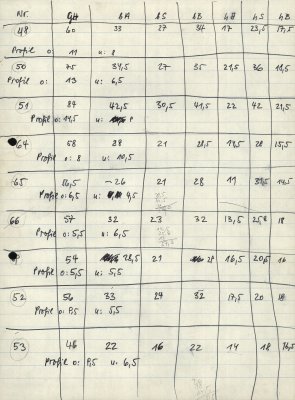 Nr. GH LA LS LB LH LS LB
48 60 33 27 34 17 23,5 17,5
Profil o: 11 u: 8
50 75 37,5 27 35 21,5 36 18,5
Profil o: 13 u: 6,5
51 84 42,5 30,5 41,5 22 42 21,5
Profil o: 11,5 u: 8
64 58 28 21 28,5 17,5 28 15,5
Profil o: 8 u: 10,5
65 56,5 26 21 28 17 14,5
Profil o: 6,5 u: 4,5
66 57 32 23 32 13,5 25,8 18
Profil o: 5,5 u: 6,5
54 28,5 21 28 16,5 20,5 16
Profil o: 5,5 u: 5,5
52 56 33 24 32 17,5 20 18
Profil o: 8,5 u: 5,5
53 46 22 16 22 14 18 13,5
Profil o: 8,5 u: 6,5